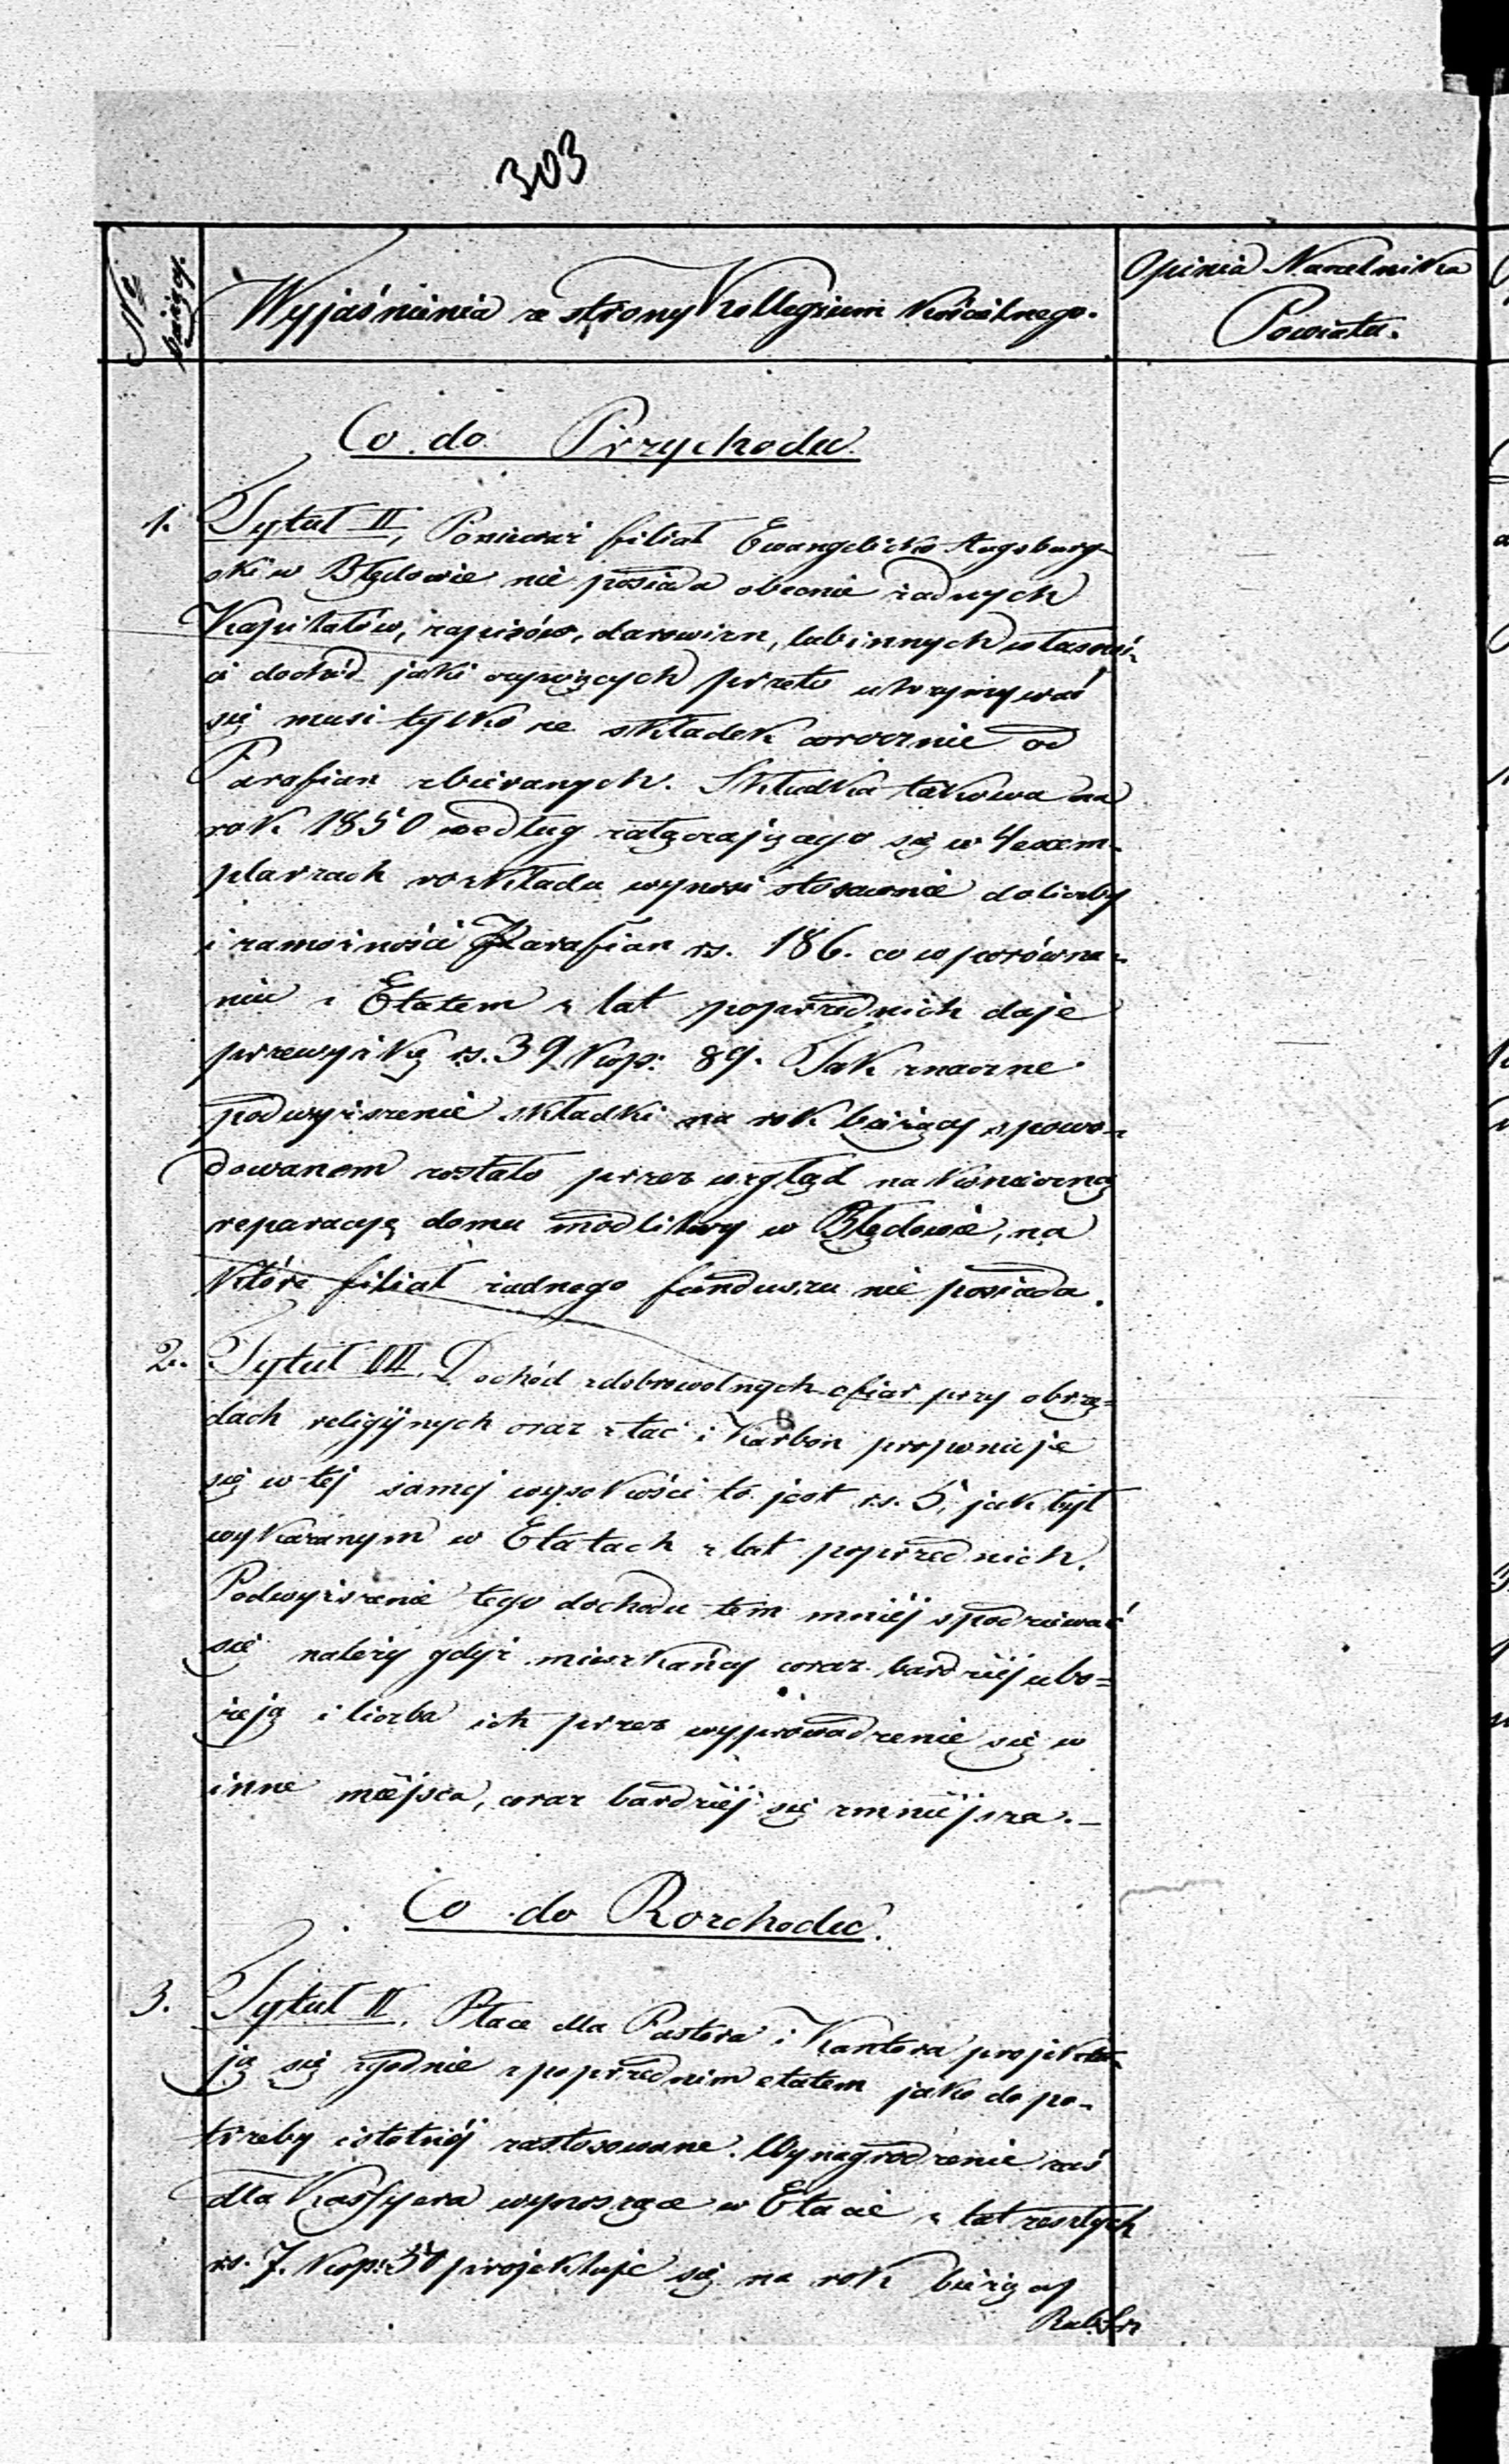 303
Nr bieżący.
Wyjaśnienia ze strony Kollegium Kościelnego.
Opinia Naczelnika
Powiatu.
Co do Przychodu.
1. Tytuł II, Ponieważ filiał Ewangelicko Augsburg-
ski w Błędowie nie posiada obecnie żadnych
Kapitałów, zapisów, darowizn, lub innych własnoś-
ci dochód jaki czyniących przeto utrzymywać
się musi tylko ze składek corocznie od
Parafian zbieranych. Składka takowa na
rok 1850 według załączającego się w 4 exem-
plarzach rozkładu wynosi stosownie do liczby
i zamożności Parafian rs. 186. co w porówna-
niu z Etatem z lat poprzednich daje
przewyżkę rs. 39 kop: 89. Tak znaczne
podwyższenie składki na rok bieżący spowo-
dowanem zostało przez wzgląd na konieczną
reparacyę domu modlitwy w Błędowie, na
które filiał żadnego funduszu nie posiada.
2. Tytuł III. Dochód z dobrowolnych ofiar przy obrzę-
dach religijnych oraz z tac i Karbon proponuje
się w tej samej wysokości to jest rs. 5, jak był
wykazanym w Etatach z lat poprzednich.
Podwyższenie tego dochodu tem mniéj spodziewać
się należy gdyż mieszkańcy coraz bardziéj ubo-
żeją i liczba ich przez wyprowadzenie się w
inne miejsca, coraz bardziéj się zmniéjsza.–
Co do Rozchodu.
3. Tytuł II. Płace dla Pastora i Kantora projektu-
ją się zgodnie z poprzednim etatem jako do po-
trzeby istotnéj zastosowane. Wynagrodzenie zaś
dla Kassyera wynoszące w Etacie z lat zeszłych
rs. 7. kop: 50 projektuje się na rok bieżący